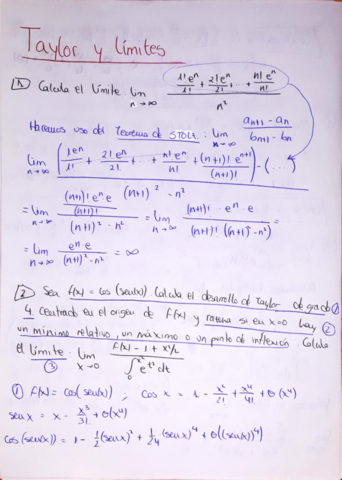 Taylor y Límites
1 Calcula el límite lim n→∞ (1!eⁿ/1! + 2!eⁿ/2! + ... + n!eⁿ/n!) / n²
Hacemos uso del Teorema de STOLZ: lim n→∞ (aₙ₊₁ - aₙ)/(bₙ₊₁ - bₙ)
lim n→∞ (1!eⁿ/1! + 2!eⁿ/2! + ... + n!eⁿ/n! + (n+1)! eⁿ⁺¹/(n+1)!) - (...)
(n+1)² - n²
= lim n→∞ ((n+1)! eⁿ·e/(n+1)!) / ((n+1)² - n²) = lim n→∞ (n+1)! · eⁿ · e / ((n+1)! ((n+1)² - n²)) =
= lim n→∞ eⁿ·e / ((n+1)² - n²) = ∞
2 Sea f(x) = cos(sen(x)). Calcula el desarrollo de Taylor de grado 1
4 centrado en el origen de f(x) y razona si en x=0 hay 2
un mínimo relativo, un máximo o un punto de inflexión. Calcula
el límite: lim x→0 (f(x) - 1 + x²/2) / ∫₀^x² e^t² dt
3
1 f(x) = cos(sen(x)) ; cos x = 1 - x²/2! + x⁴/4! + θ(x⁴)
sen x = x - x³/3! + θ(x⁴)
cos(sen(x)) = 1 - 1/2 (sen x)² + 1/24 (sen x)⁴ + θ((sen x)⁴)